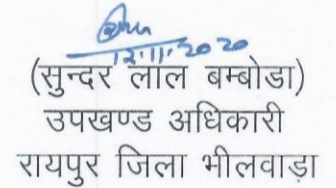 12.11.2020
(सुन्दर लाल बम्बोडा)
उपखण्ड अधिकारी
रायपुर जिला भीलवाड़ा